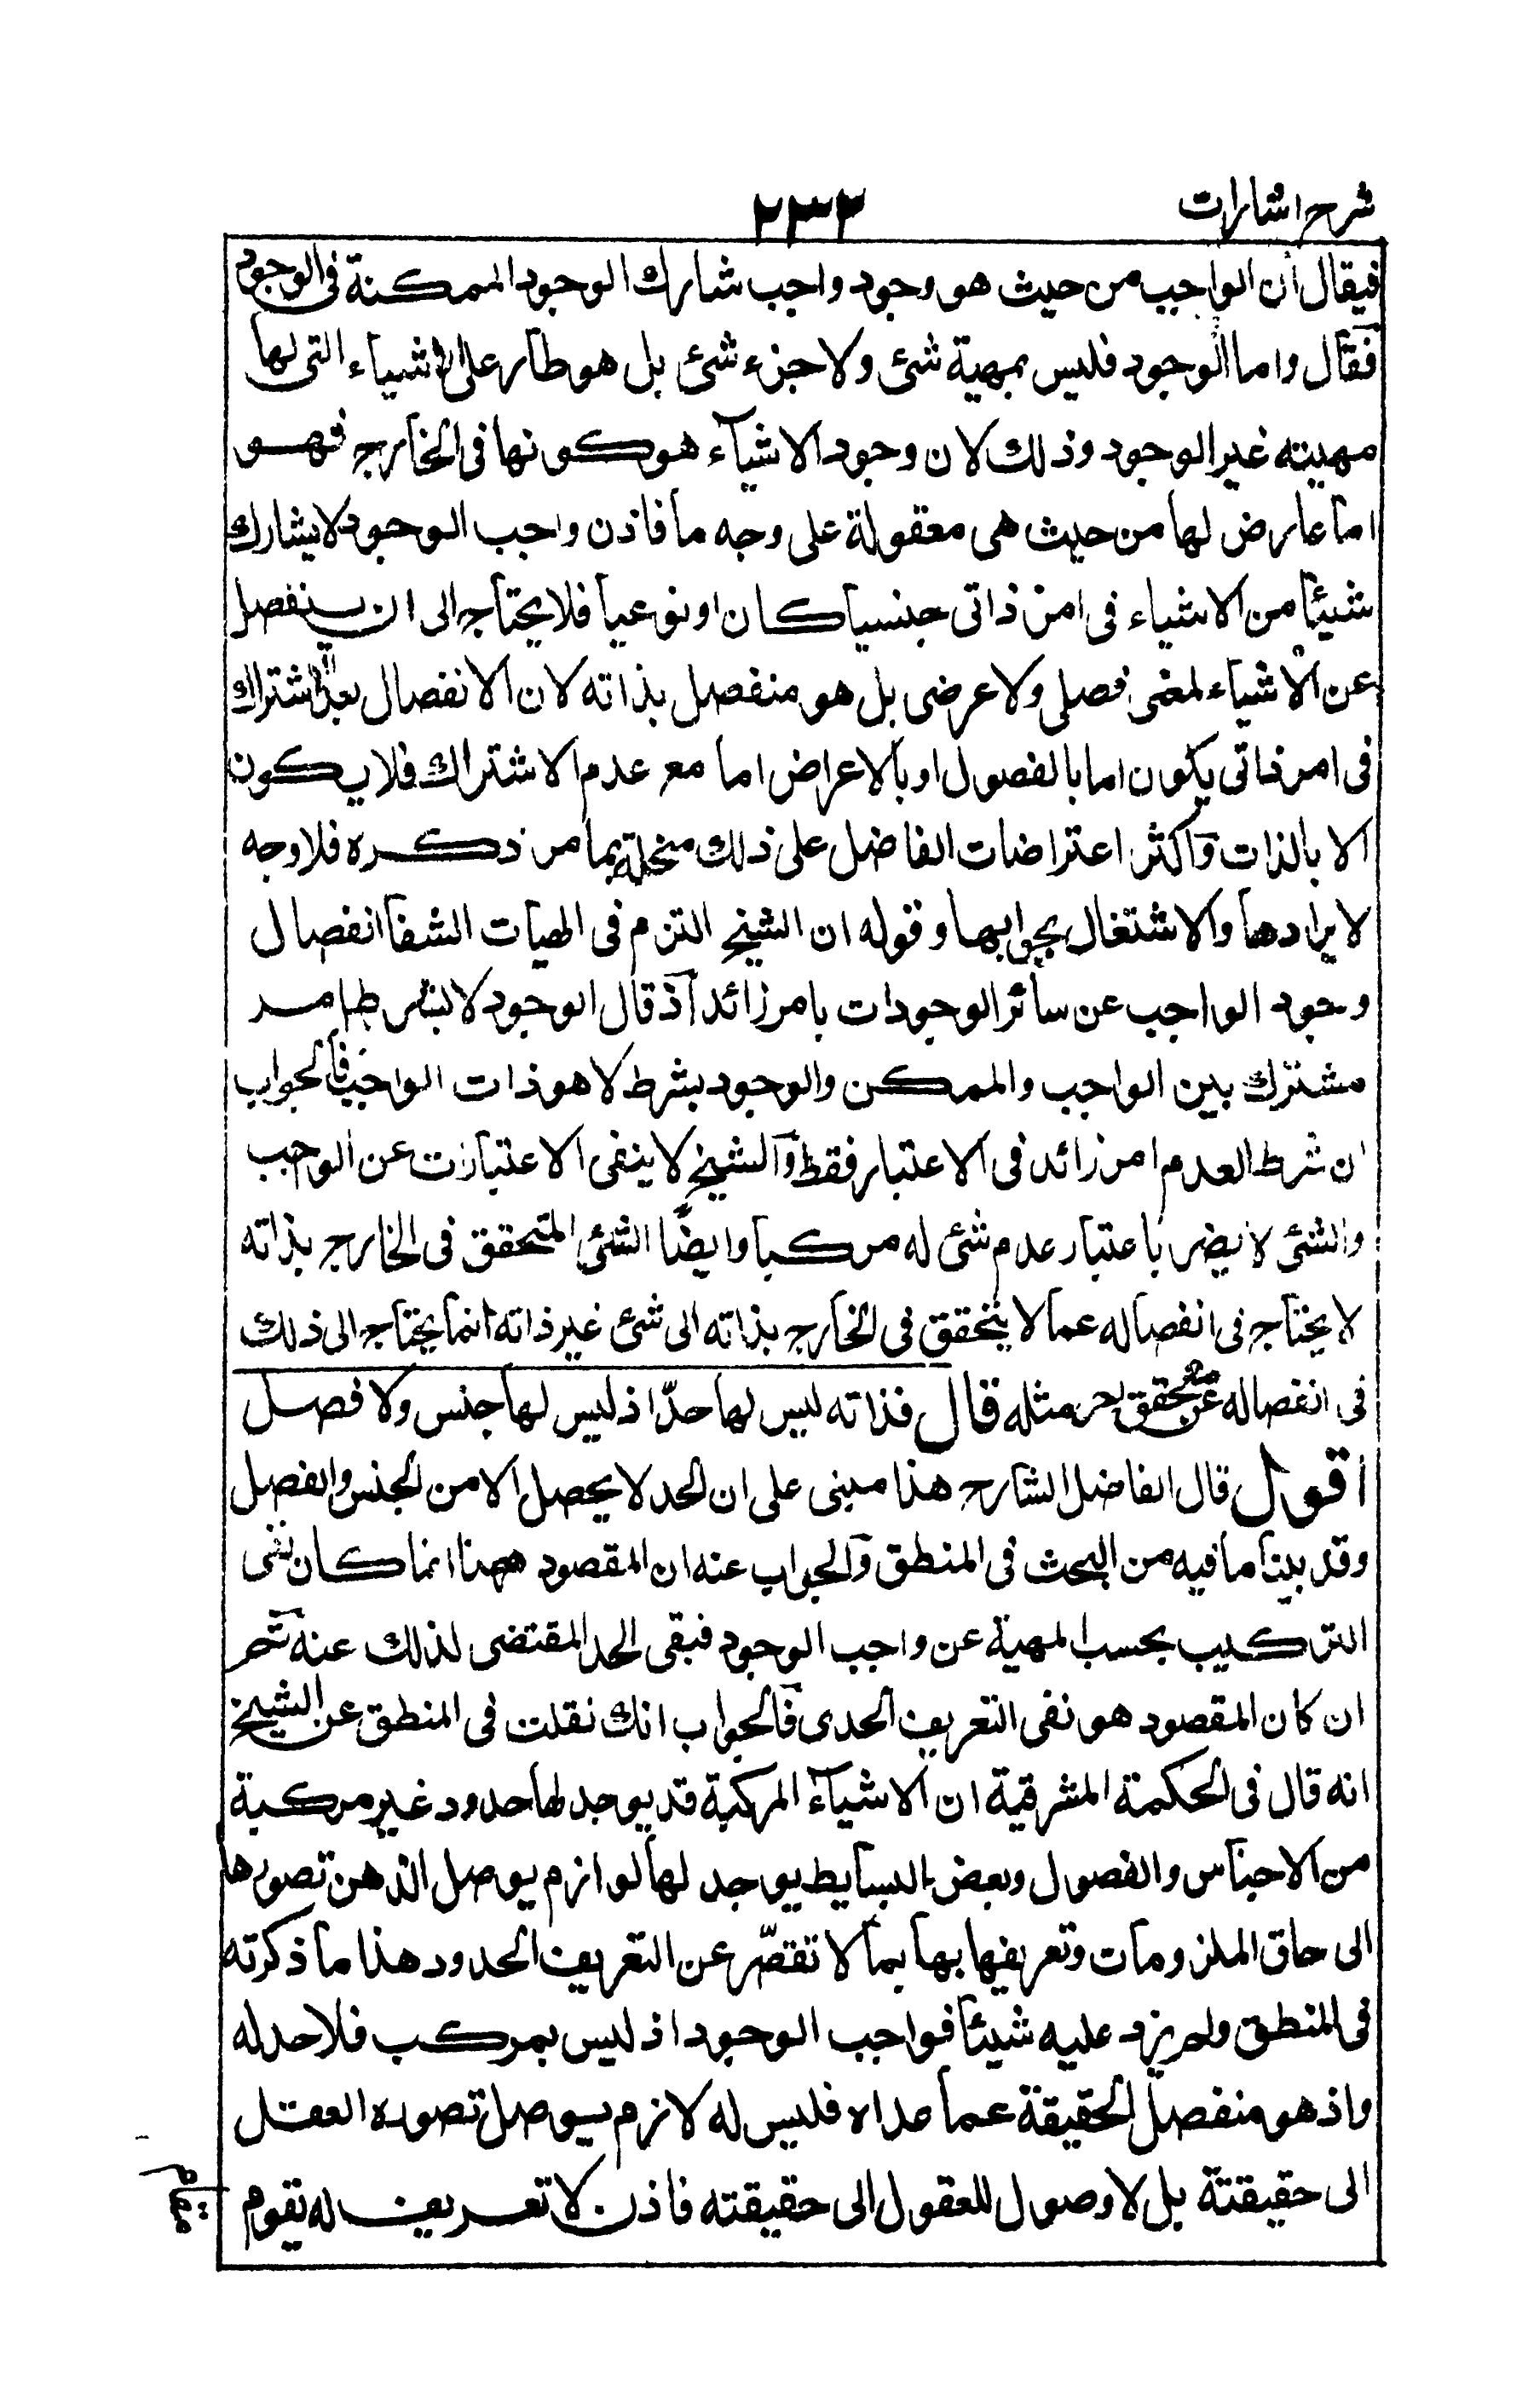 شرح اشارات
٢٣٢
فيقال ان الواجب من حيث هو وجود واجب شارك الوجود الممكنة فى الوجود
فقال واما الوجود فليس بمهية شئ ولا جزء شئ بل هو طار على الاشياء التى لها
مهيته غير الوجود وذلك لان وجود الاشياء هو كونها فى الخارج فهو
اما عارض لها من حيث هى معقولة على وجه ما فاذن واجب الوجود لا يشارك
شيئا من الاشياء فى امر ذاتى جنسيا كان او نوعيا فلا يحتاج الى ان ينفصل
عن الاشياء لمعنى فصلى ولا عرضى بل هو منفصل بذاته لان الانفصال بعد الاشتراك
فى امر ذاتى يكون اما بالفصول او بالاعراض اما مع عدم الاشتراك فلا يكون
الا بالذات واكثر اعتراضات الفاضل على ذلك منحلة بما مر ذكره فلا وجه
لايرادها والاشتغال بجوابها وقوله ان الشيخ التزم فى الهيات الشفا انفصال
وجود الواجب عن سائر الوجودات بامر زائد اذ قال الوجود لا بشرط امر
مشترك بين الواجب والممكن والوجود بشرط لا هو ذات الواجب فالجواب
ان شرط العدم امر زائد فى الاعتبار فقط والشيخ لا ينفى الاعتبارات عن الواجب
والشئ لا يضر باعتبار عدم شئ له مركبا وايضا الشئ المتحقق فى الخارج بذاته
لا يحتاج فى انفصاله عما لا يتحقق فى الخارج بذاته الى شئ غير ذاته انما يحتاج الى ذلك
فى انفصاله عن متحقق اخر مثله قال فذاته ليس لها حدّ اذ ليس لها جنس ولا فصل
اقول قال الفاضل الشارح هذا مبنى على ان الحد لا يحصل الا من الجنس والفصل
وقد بينا ما فيه من البحث فى المنطق والجواب عنه ان المقصود ههنا انما كان نفى
التركيب بحسب المهية عن واجب الوجود فبقى الحد المقتضى لذلك عنه ثم
ان كان المقصود هو نفى التعريف الحدى فالجواب انك نقلت فى المنطق عن الشيخ
انه قال فى الحكمة المشرقية ان الاشياء المركبة قد يوجد لها حدود غير مركبة
من الاجناس والفصول وبعض البسايط يوجد لها لوازم يوصل الذهن تصورها
الى حاق الملزومات وتعريفها بها بما لا تقصّر عن التعريف الحدود هذا ما ذكرته
فى المنطق ولم يزد عليه شيئا فواجب الوجود اذ ليس بمركب فلا حد له
واذ هو منفصل الحقيقة عما عداه فليس له لازم يوصل تصوره العقل
الى حقيقتة بل لا وصول للعقول الى حقيقته فاذن لا تعريف له يقوم